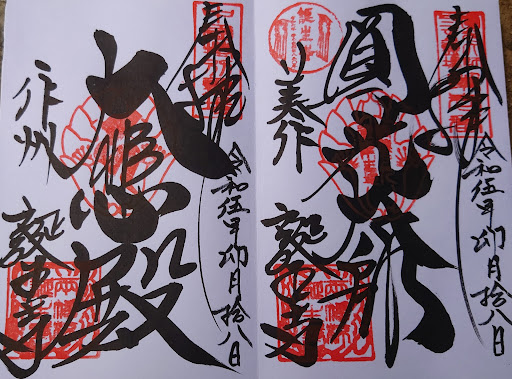 奉拝
令和伍年卯月拾八日
圓光大師
美作
誕生寺
奉拝
令和伍年卯月拾八日
大悲殿
作州
誕生寺